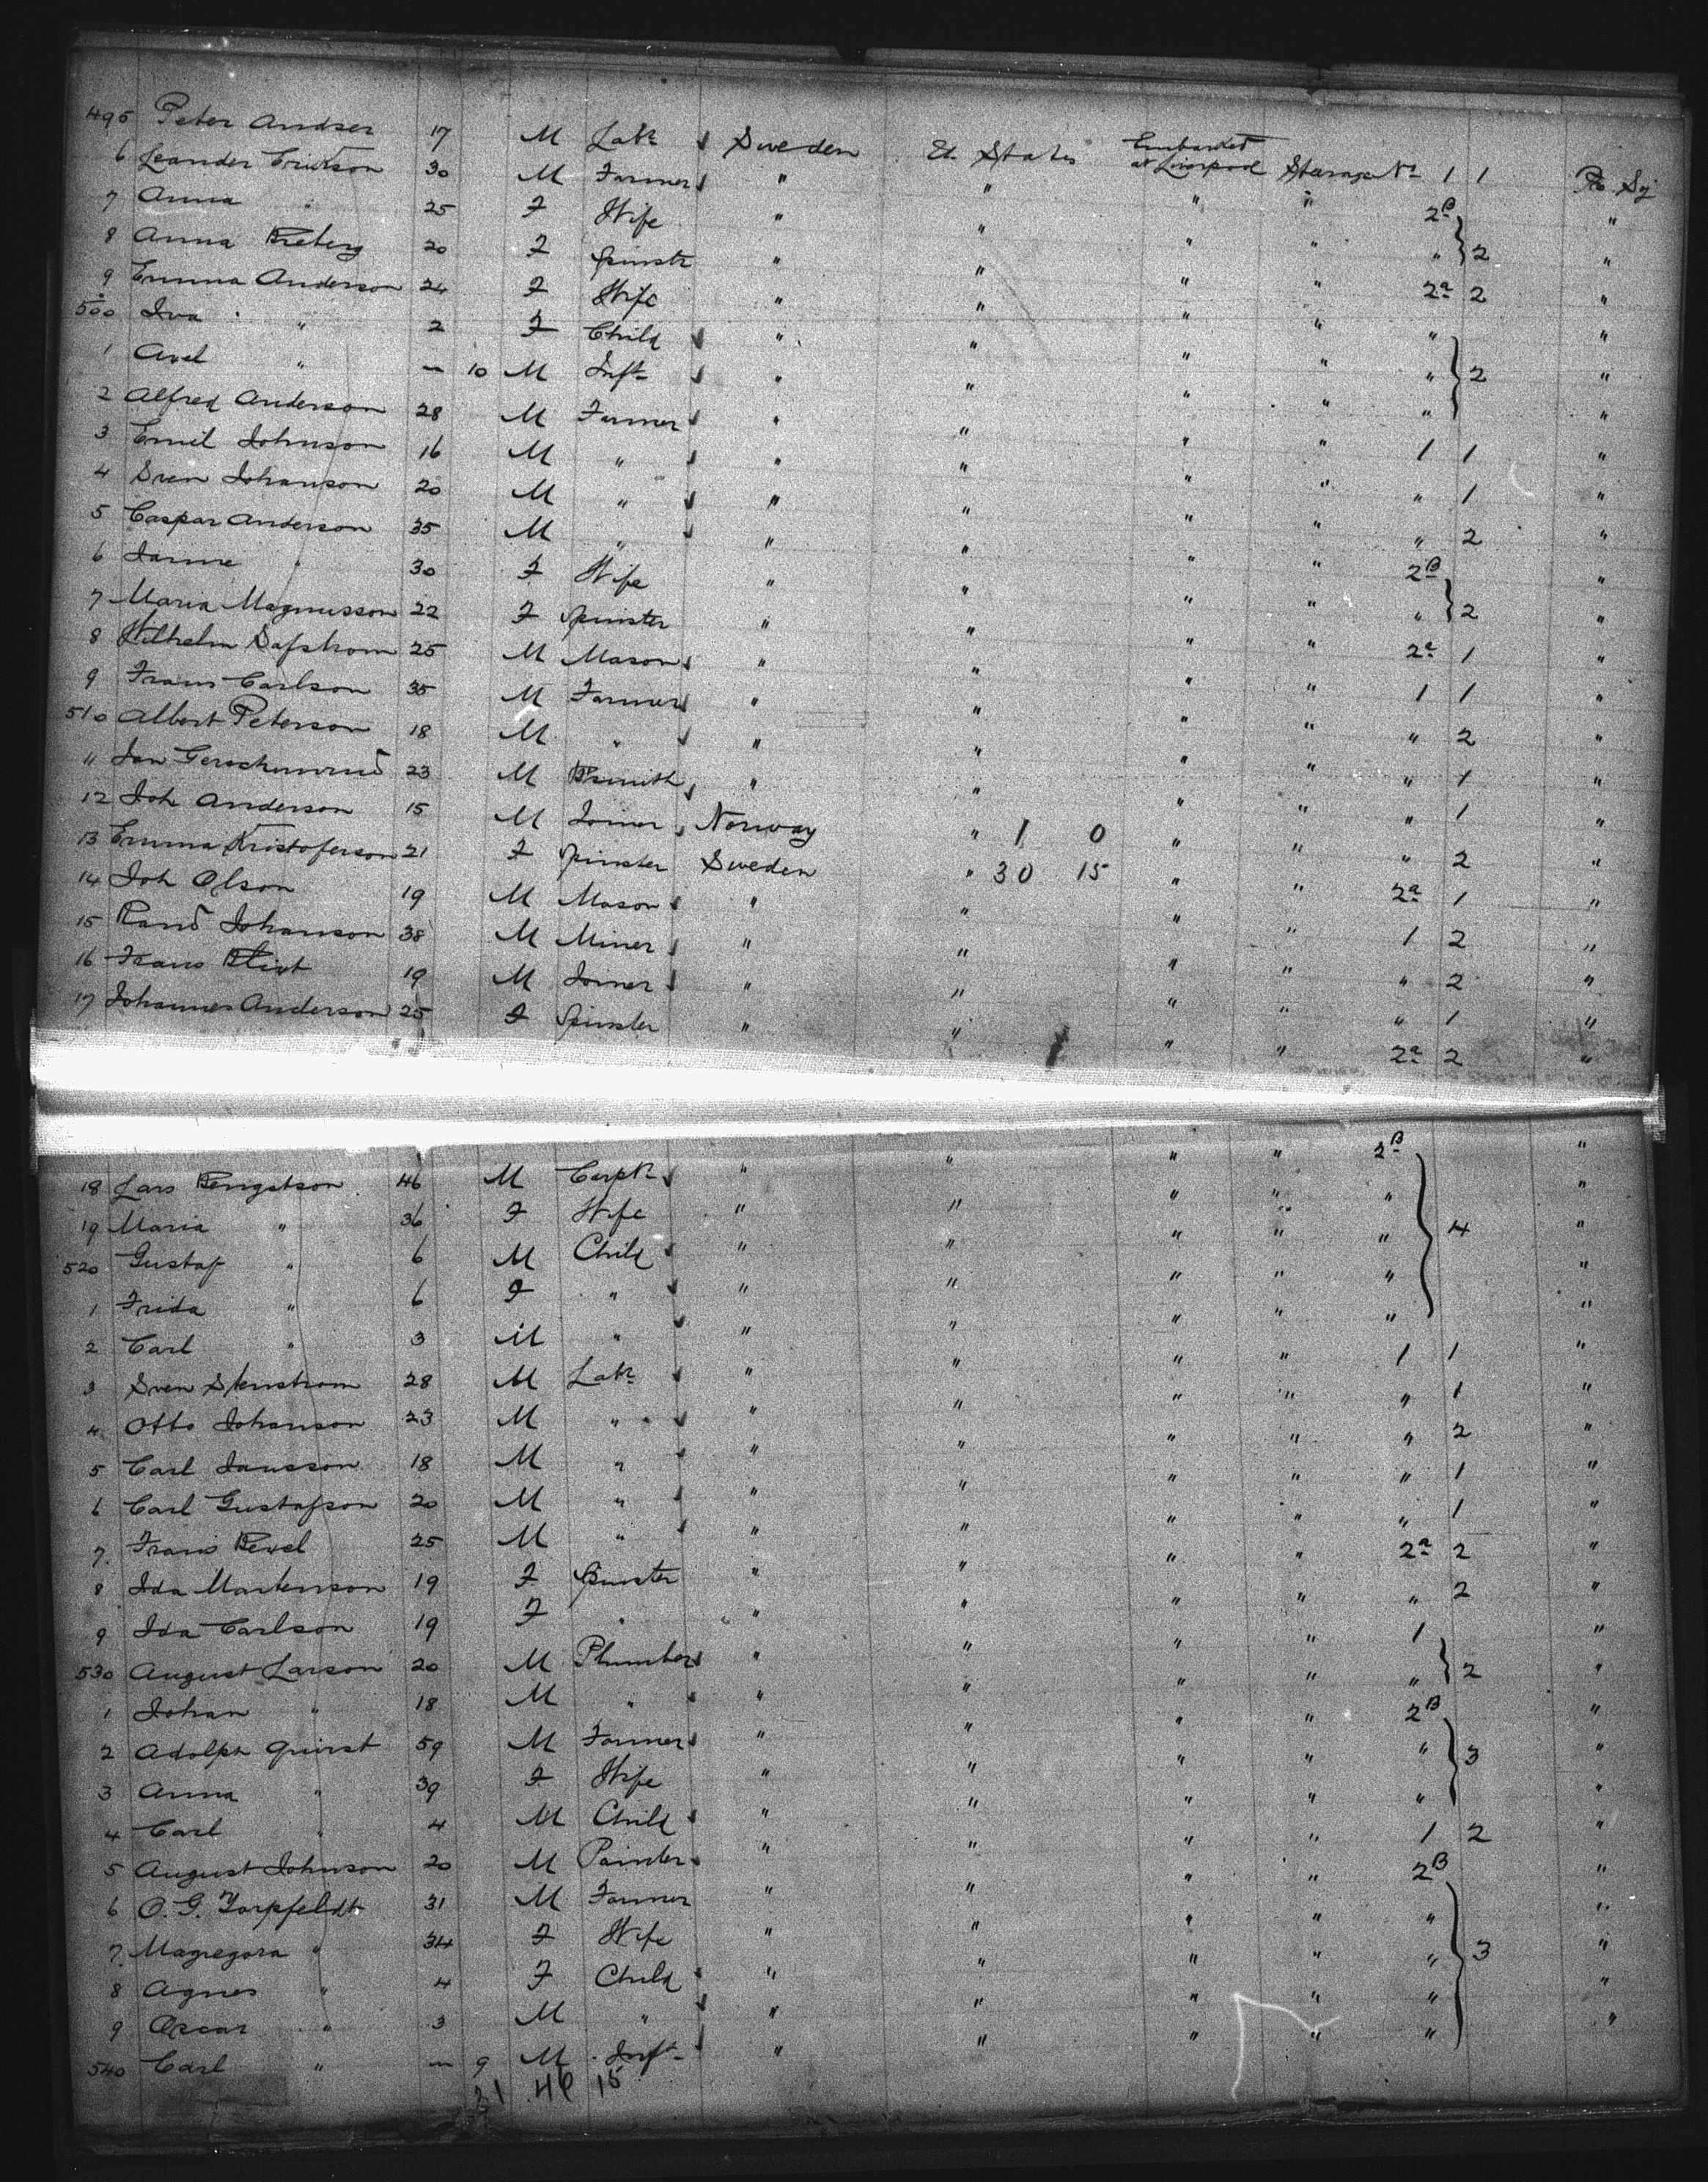 495 Peter Andser 17 M Labr Sweden U. States Embarked at Liverpool Steerage No 1 1 Pro. Sj
6 Leander Erikson 30 M Farmer " " " " 2B "
7 Anna " 25 F Wife " " " " " 2 "
8 Anna Breberg 20 F Spinstr " " " " 2a 2 "
9 Emma Anderson 24 F Wife " " " " " "
500 Iva " 2 F Child " " " " " 2 "
1 Axel " — 10 M Inft " " " " " "
2 Alfred Anderson 28 M Farmer " " " " 1 1 "
3 Emil Johnson 16 M " " " " " " 1 "
4 Sven Johanson 20 M " " " " " " 2 "
5 Caspar Anderson 35 M " " " " " 2B "
6 Janne " 30 F Wife " " " " " 2 "
7 Maria Magnusson 22 F Spinster " " " " 2a 1 "
8 Wilhelm Safstrom 25 M Mason " " " " 1 1 "
9 Frans Carlson 35 M Farmer " " " " " 2 "
510 Albert Peterson 18 M " " " " " " 1 "
11 Jan 23 M Bsmith " " " " " 1 "
12 Joh Anderson 15 M Joiner Norway " 1 0 " " " 2 "
13 Emma Kristoferson 21 F Spinster Sweden " 30 15 " " 2a 1 "
14 Joh Olson 19 M Mason " " " " 1 2 "
15 Rand Johanson 38 M Miner " " " " " 2 "
16 Frans 19 M Joiner " " " " " 1 "
17 Johannes Anderson 25 F Spinster " " " " 2a 2 "
18 Lars Bengtson 46 M Carptr " " " " 2B "
19 Maria " 36 F Wife " " " " " 4 "
520 Gustaf " 6 M Child " " " " " "
1 Frida " 6 F " " " " " " "
2 Carl " 3 M " " " " " " "
3 Sven Stenstrom 28 M Labr " " " " 1 1 "
4 Otto Johanson 23 M " " " " " " 1 "
5 Carl Jansson 18 M " " " " " " 2 "
6 Carl Gustafson 20 M " " " " " " 1 "
7 Frans Bewel 25 M " " " " " " 1 "
8 Ida Martenson 19 F Spinster " " " " 2a 2 "
9 Ida Carlson 19 F " " " " " " 2 "
530 August Larson 20 M Plumber " " " " 1 "
1 Johan " 18 M " " " " " " 2 "
2 Adolph Quirst 59 M Farmer " " " " 2B "
3 Anna " 39 F Wife " " " " " 3 "
4 Carl " 4 M Child " " " " " "
5 August Johnson 20 M Painter " " " " 1 2 "
6 O. G. Torpfeldt 31 M Farmer " " " " 2B "
7 Magregora " 34 F Wife " " " " " "
8 Agnes " 4 F Child " " " " " 3 "
9 Oscar " 3 M " " " " " " "
540 Carl " — 9 M Inft " " " " " "
31 46 15